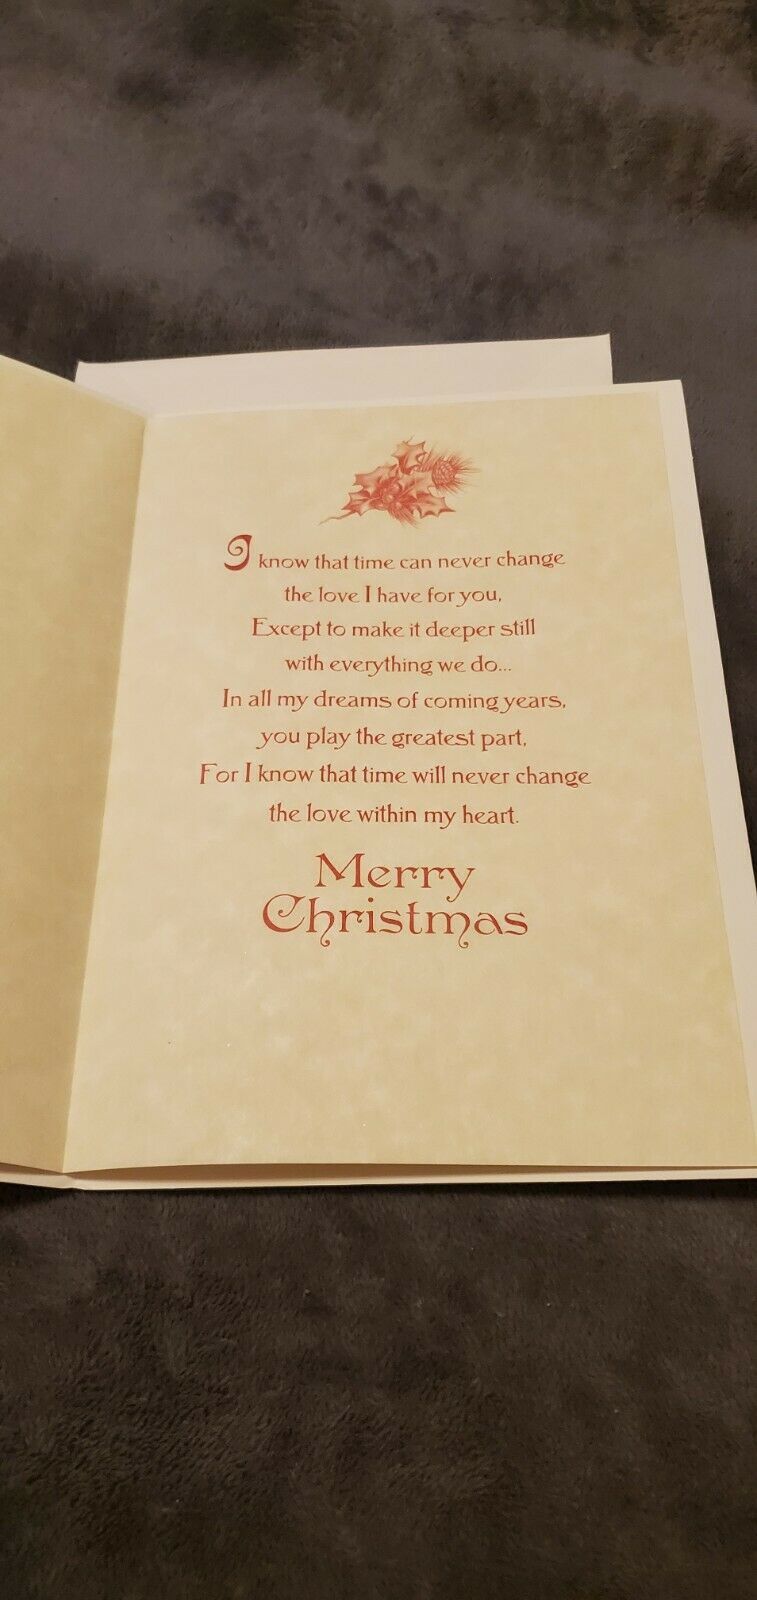 I know that time can never change
the love I have for you,
Except to make it deeper still
with everything we do...
In all my dreams of coming years,
you play the greatest part,
For I know that time will never change
the love within my heart.
Merry
Christmas